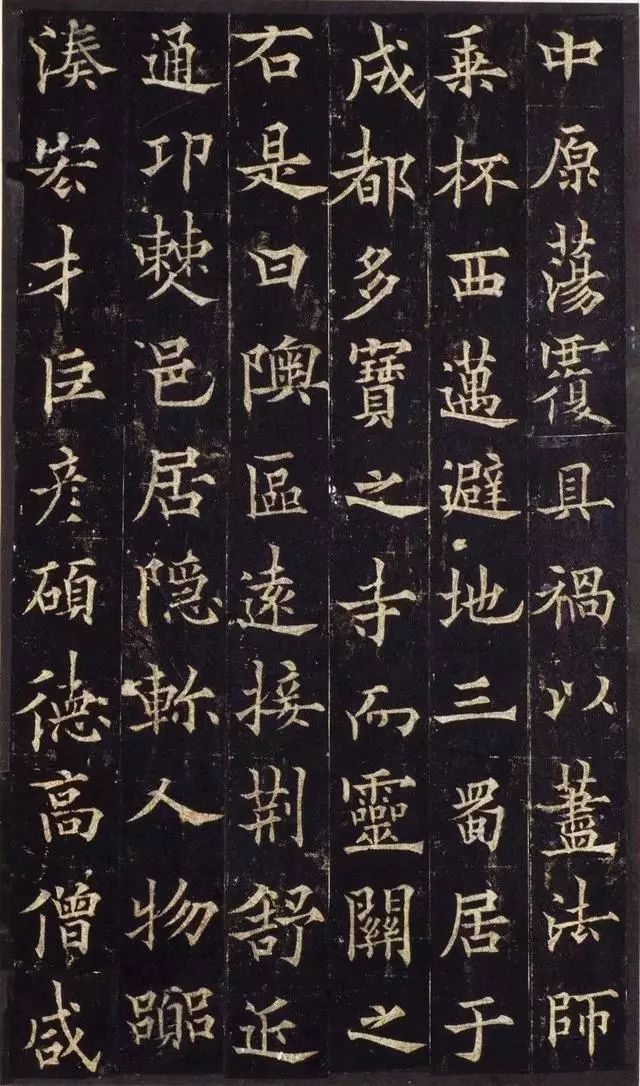 中原蕩覆具禍以藎法師
乗杯西邁避地三蜀居于
成都多寶之寺而靈關之
右是曰隩區遠接荆舒近
通卭僰邑居隱軫人物嚻
湊宏才巨彦碩德高僧咸